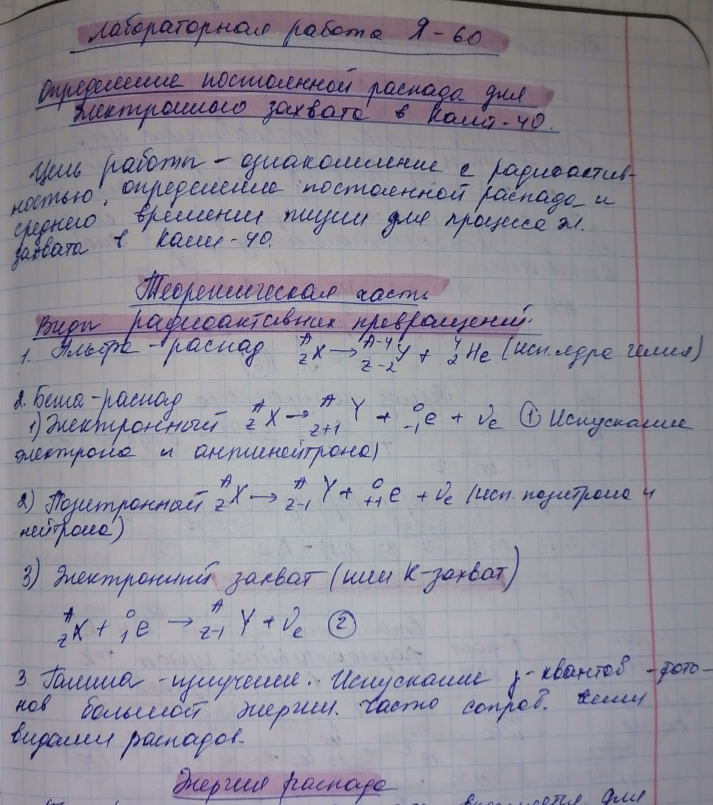 Лабораторная работа Я-60
Определение постоянной распада для
электронного захвата в Калии-40.
Цель работы - ознакомление с радиоактив-
ностью, определение постоянной распада и
среднего времени жизни для процесса эл.
захвата в Калии-40.
Теоретическая часть
Виды радиоактивных превращений.
1. Альфа-распад ᴬ_Z X → ᴬ⁻⁴_Z-2 Y + ⁴₂He (исп. ядра гелия)
2. Бета-распад
1) Электронный ᴬ_Z X → ᴬ_Z+1 Y + ⁰₋₁e + ν̃e ① Испускание
электрона и антинейтрона)
2) Позитронный ᴬ_Z X → ᴬ_Z-1 Y + ⁰₊₁e + νe (исп. позитрона и
нейтрона)
3) Электронный захват (или K-захват)
ᴬ_Z X + ⁰₁e → ᴬ_Z-1 Y + νe ②
3. Гамма-излучение. Испускание γ-квантов - фото-
нов большой энергии. Часто сопров.
видами распадов.
Энергия распада
для